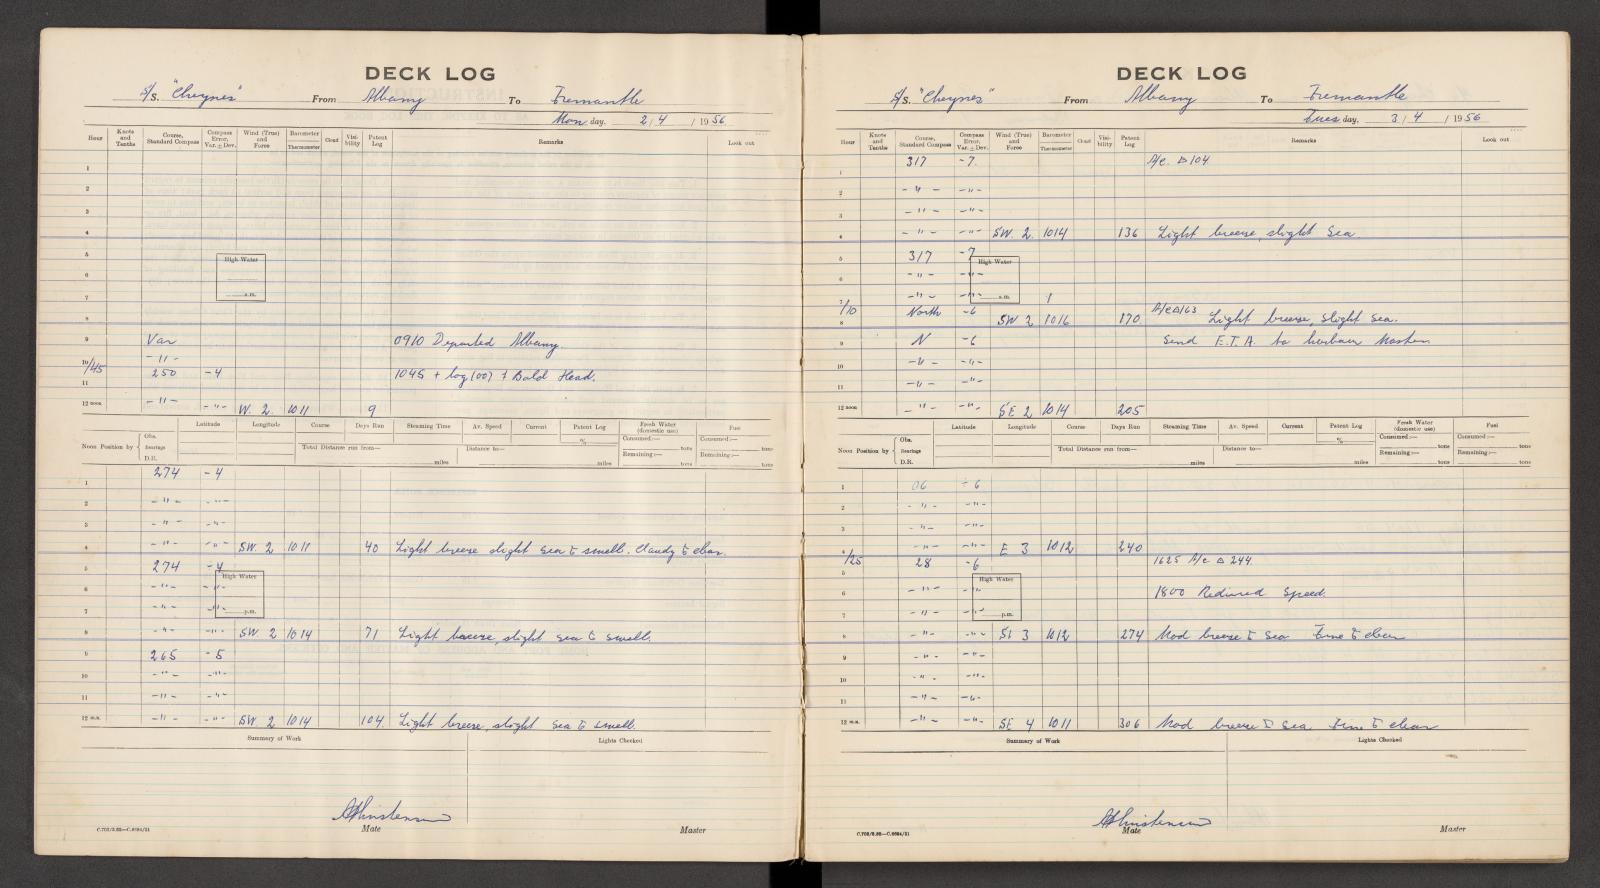 DECK LOG
S/S. "Cheynes" From Albany To Fremantle
Mon day. 2/4 /1956
Hour Knots and Tenths Course, Standard Compass Compass Error, Var. ± Dev. Wind (True) and Force Barometer Thermometer Cloud Visibility Patent Log Remarks Look out
1
2
3
4
5
High Water
6
7 a.m.
8
9 Var 0910 Departed Albany.
10 -"-
10/45 250 -4 1045 + log (00) + Bald Head.
11
12 noon -"- -"- W. 2 1011 9
Latitude Longitude Course Days Run Steaming Time Av. Speed Current Patent Log Fresh Water (domestic use) Fuel
Noon Position by Obs. Bearings D.R. Total Distance run from— miles Distance to— miles % Consumed:— tons Remaining:— tons Consumed:— tons Remaining:— tons
274 -4
1
2 -"- -"-
3 -"- -"-
4 -"- -"- SW. 2 1011 40 Light breeze slight sea & swell. Cloudy & clear.
5 274 -4
High Water
6 -"- -"-
7 -"- -"- p.m.
8 -"- -"- SW. 2 1014 71 Light breeze, slight sea & swell.
9 265 -5
10 -"- -"-
11 -"- -"-
12 m.n. -"- -"- SW 2 1014 104. Light breeze, slight sea & swell.
Summary of Work Lights Checked
AChristensen
C.702/3.52—C.6694/51 Mate Master
DECK LOG
S/S. "Cheynes" From Albany To Fremantle
Tues day. 3/4 /1956
Hour Knots and Tenths Course, Standard Compass Compass Error, Var. ± Dev. Wind (True) and Force Barometer Thermometer Cloud Visibility Patent Log Remarks Look out
317 -7. A/c. Δ 104
1
2 -"- -"-
3 -"- -"-
4 -"- -"- SW. 2. 1014 136 Light breeze, slight sea
5 317 -7
High Water
6 -"- -"-
7 -"- -"- a.m.
7/10 North -6 A/c Δ 163
8 SW 2 1016 170. Light breeze, slight sea.
9 N -6 Send E.T.A. to harbour Master.
10 -"- -"-
11 -"- -"-
12 noon -"- -"- SE 2 1014 205
Latitude Longitude Course Days Run Steaming Time Av. Speed Current Patent Log Fresh Water (domestic use) Fuel
Noon Position by Obs. Bearings D.R. Total Distance run from— miles Distance to— miles % Consumed:— tons Remaining:— tons Consumed:— tons Remaining:— tons
1 06 -6
2 -"- -"-
3 -"- -"-
4 -"- -"- E 3 1012 240
4/25 28 -6 1625 A/c Δ 244.
5
High Water
6 -"- -"- 1800 Reduced Speed.
7 -"- -"- p.m.
8 -"- -"- SE 3 1012 274 Mod breeze & sea Fine & clear
9 -"- -"-
10 -"- -"-
11 -"- -"-
12 m.n. -"- -"- SE 4 1011 306 Mod breeze & sea. Fine & clear
Summary of Work Lights Checked
AChristensen
C.702/3.52—C.6694/51 Mate Master